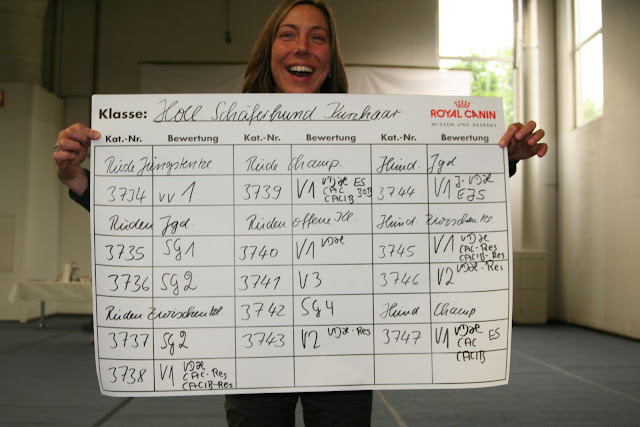 Klasse: Holl. Schäferhund Kurzhaar
ROYAL CANIN
WISSEN UND RESPEKT
Kat.-Nr. Bewertung Kat.-Nr. Bewertung Kat.-Nr. Bewertung
Rüde Jüngstenkl Rüde Champ. Hünd. Jgd
3734 vv 1 3739 V1 VDH ES CAC BOB CACIB 3744 V1 J-VDH EJS
Rüden Jgd. Rüden offene Kl. Hünd. Zwischenkl.
3735 SG1 3740 V1 VDH 3745 V1 VDH CAC-Res CACIB-Res
3736 SG2 3741 V3 3746 V2 VDH-Res
Rüden Zwischenkl 3742 SG4 Hünd. Champ
3737 SG2 3743 V2 VDH-Res 3747 V1 VDH ES CAC CACIB
3738 V1 VDH CAC-Res CACIB-Res